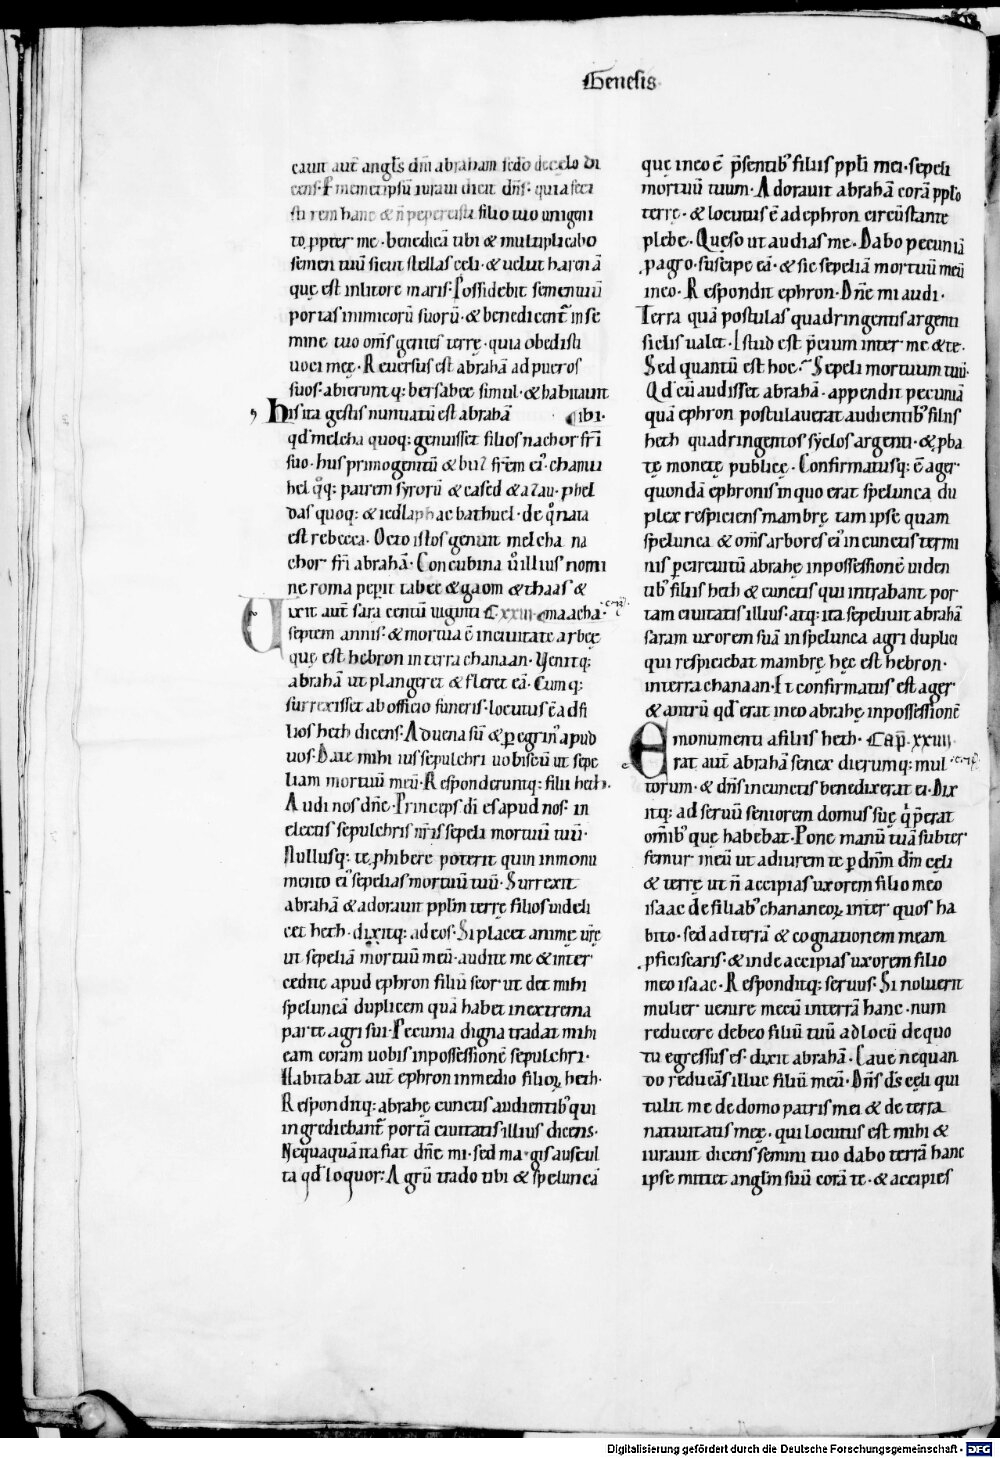 Genesis
cauit aut̄ angl̄s dn̄i abraham sc̄do de cęlo di
cens· P memetipsū iuraui dicit dn̄s· quia feci
sti rem hanc & n̄ pepercisti filio tuo unigeni
to ꝓpter me· benedicā tibi & multiplicabo
semen tuū sicut stellas celi· & uelut harenā
quę est in litore maris· Possidebit semen tuū
portas inimicorū suorū· & benedicent̄ in se
mine tuo om̄s gentes terrę· quia obedisti
uoci meę· Reuersus est abrahā ad pueros
suos· abierunt q: bersabee simul· & habitauit
his ita gestis nuntiatū est abrahā ibi·
qd̄ melcha quoq: genuisset filios nachor fr̄i
suo· hus primogenitū & buz fr̄em ei᾽ chamu
hel q̊q: patrem syrorū & cased & azau· phel
das quoq: & iedlaphac bathuel· de q̊ nata
est rebecca· Octo istos genuit melcha na
chor fr̄i abrahā· Concubina ů illius nomi
ne roma pepit tabee & gaom & thaas &
Uixit aut̄ sara centū uiginti C. XXIII maacha·
septem annis· & mortua ē in ciuitate arbeę
quę est hebron in terra chanaan· Uenitq:
abrahā ut plangeret & fleret eā· Cumq:
surrexisset ab officio funeris· locutus ē ad fi
lios heth dicens· Aduena sū & ꝑegrin᾽ apud
uos· Date mihi ius sepulchri uobiscū ut sepe
liam mortuū meū· Responderuntq: filii heth·
Audi nos dn̄e· Princeps dī es apud nos· in
electis sepulchris nr̄is sepeli mortuū tuū·
Nullusq: te ꝓhibere poterit quin in monu
mento ei᾽ sepelias mortuū tuū· Surrexit
abrahā & adorauit ppl̄m terrę filios uideli
cet heth· dixitq: ad eos· Si placet animę ur̄ę
ut sepeliā mortuū meū· audite me & inter
cedite apud ephron filiū seor· ut det mihi
speluncā duplicem quā habet in extrema
parte agri sui· Pecunia digna tradat mihi
eam coram uobis in possessionē sepulchri·
Habitabat aut̄ ephron in medio filioꝝ heth·
Responditq: abrahę cunctis audientib᾽ qui
ingrediebant̄ portā ciuitatis illius dicens·
Nequaquā ita fiat dn̄e mi· sed magis auscul
ta qd̄ loquor· Agrū trado tibi & speluncā
que in eo ē p̄sentib᾽ filiis ppl̄i mei· sepeli
mortuū tuum· Adorauit abrahā corā pplo
terrę· & locutus ē ad ephron circūstante
plebe· Quęso ut audias me· Dabo pecuniā
ꝓ agro· suscipe eā· & sic sepeliā mortuū meū
in eo· Respondit ephron· Dn̄e mi audi·
Terra quā postulas quadringentis argenti
siclis ualet· Istud est p̄cium inter me & te·
Sed quantū est hoc· Sepeli mortuum tuū·
Qd̄ cū audisset abrahā· appendit pecuniā
quā ephron postulauerat audientib᾽ filiis
heth quadringentos syclos argenti· & ꝓba
tę monetę publicę· Confirmatusq: ē ager·
quondā ephronis in quo erat spelunca du
plex respiciens mambrę tam ipse quam
spelunca & om̄s arbores ei᾽ in cunctis termi
nis ꝑ circuitū abrahę in possessionē uiden
tib᾽ filiis heth & cunctis qui intrabant por
tam ciuitatis illius· atq: ita sepeliuit abrahā
saram uxorem suā in spelunca agri duplici
qui respiciebat mambrę hęc est hebron·
in terra chanaan· Et confirmatus est ager
& antrū qd̄ erat in eo abrahę in possessionē
monumenti a filiis heth· CAP̄. XXIIII
Erat aut̄ abrahā senex dierumq: mul
torum· & dn̄s in cunctis benedixerat ei· Dix
itq: ad seruū seniorem domus suę q̇ p̄erat
om̄ib᾽ quę habebat· Pone manū tuā subter
femur meū ut adiurem te ꝑ dn̄m dm̄ cęli
& terrę ut n̄ accipias uxorem filio meo
isaac de filiab᾽ chananeoꝝ inter quos ha
bito· sed ad terrā & cognationem meam
ꝓficiscaris· & inde accipias uxorem filio
meo isaac· Responditq: seruus· Si noluerit
mulier uenire mecū in terrā hanc· num
reducere debeo filiū tuū ad locū de quo
tu egressus es· dixit abrahā· Caue nequan
do reducas illuc filiū meū· Dn̄s ds̄ cęli qui
tulit me de domo patris mei & de terra
natiuitatis meę· qui locutus est mihi &
iurauit dicens semini tuo dabo terrā hanc
ipse mittet angl̄m suū corā te· & accipies
Digitalisierung gefördert durch die Deutsche Forschungsgemeinschaft - DFG